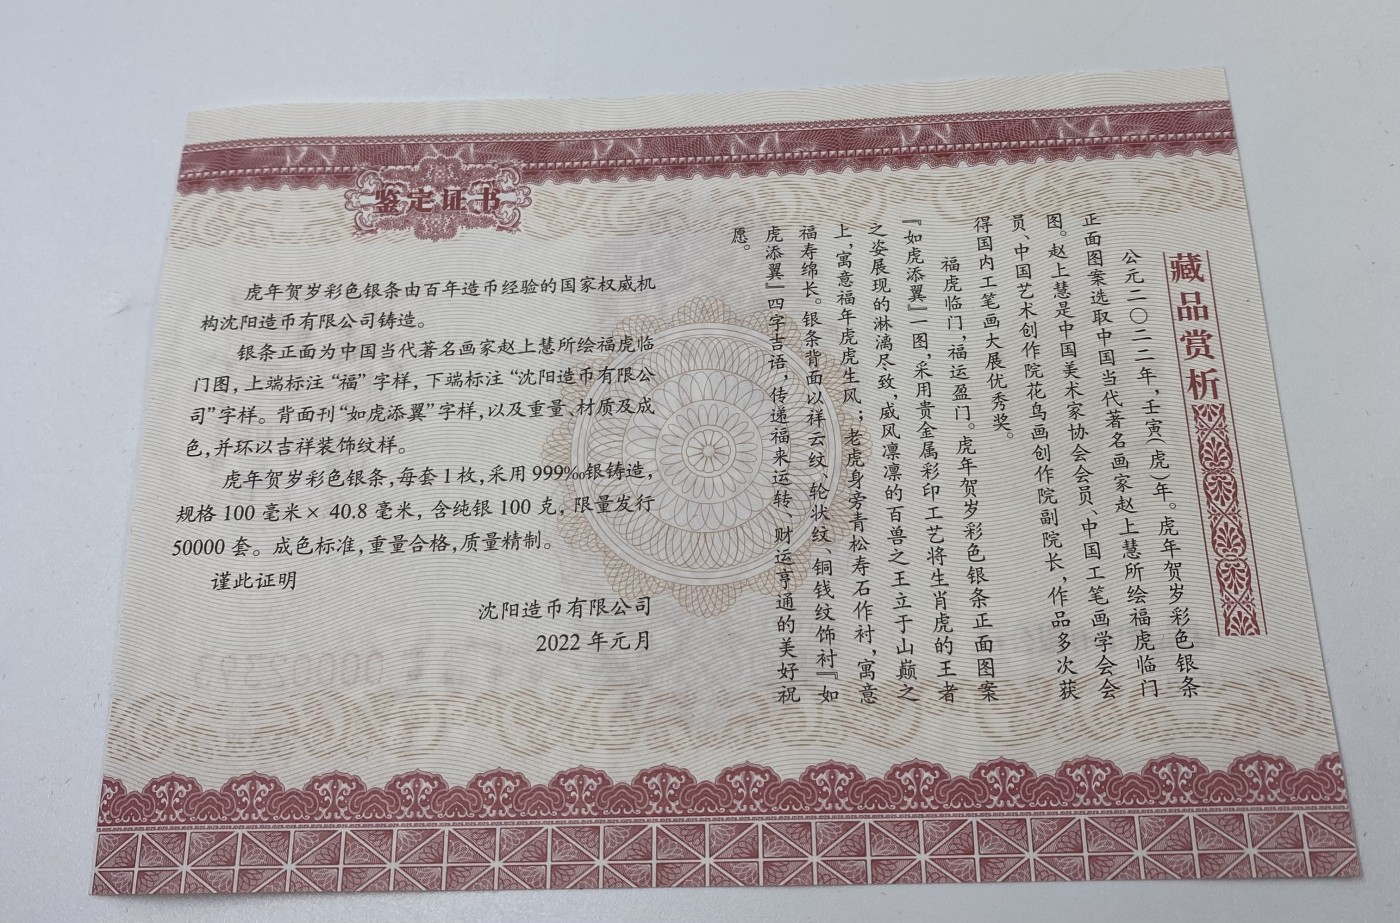 鉴定证书
虎年贺岁彩色银条由百年造币经验的国家权威机
构沈阳造币有限公司铸造。
银条正面为中国当代著名画家赵上慧所绘福虎临
门图，上端标注“福”字样，下端标注“沈阳造币有限公
司”字样。背面刊“如虎添翼”字样，以及重量、材质及成
色，并环以吉祥装饰纹样。
虎年贺岁彩色银条，每套1枚，采用999‰银铸造，
规格100毫米×40.8毫米，含纯银100克，限量发行
50000套。成色标准，重量合格，质量精制。
谨此证明
沈阳造币有限公司
2022年元月
藏品赏析
公元二〇二二年，壬寅（虎）年。虎年贺岁彩色银条
正面图案选取中国当代著名画家赵上慧所绘福虎临门
图。赵上慧是中国美术家协会会员、中国工笔画学会会
员、中国艺术创作院花鸟画创作院副院长，作品多次获
得国内工笔画大展优秀奖。
福虎临门，福运盈门。虎年贺岁彩色银条正面图案
『如虎添翼』一图，采用贵金属彩印工艺将生肖虎的王者
之姿展现的淋漓尽致，威风凛凛的百兽之王立于山巅之
上，寓意福年虎虎生风；老虎身旁青松寿石作衬，寓意
福寿绵长。银条背面以祥云纹、轮状纹、铜钱纹饰衬『如
虎添翼』四字吉语，传递福来运转、财运亨通的美好祝
愿。